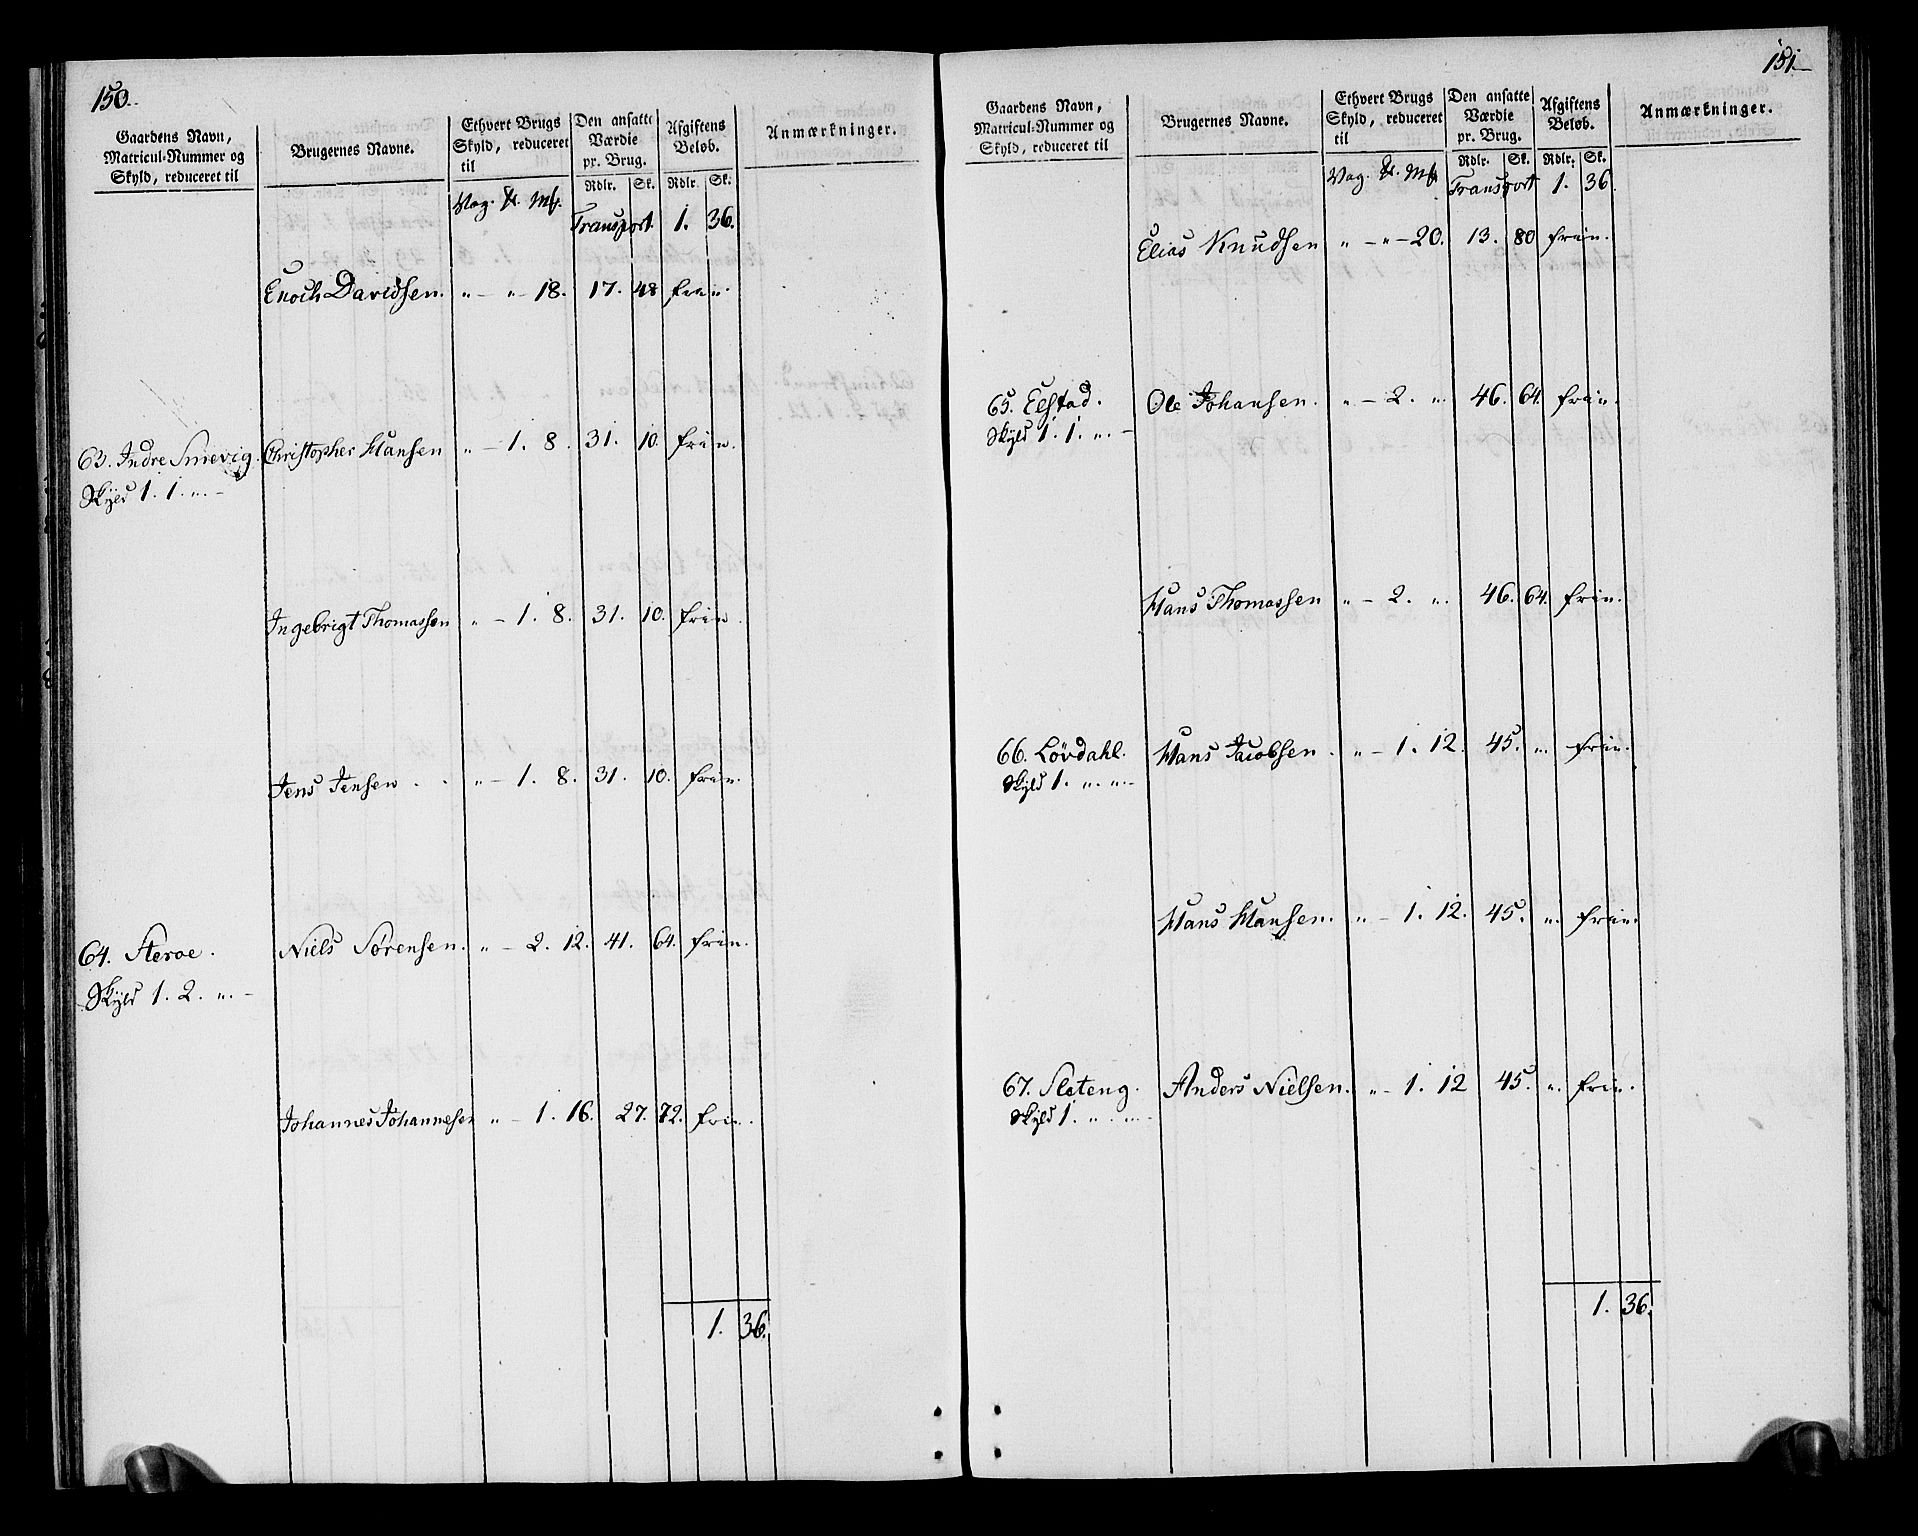 150.
Gaardens Navn, Matricul-Nummer og Skyld, reduceret til
Brugernes Navne.
Ethvert Brugs Skyld, reduceret til
Den ansatte Værdie pr. Brug.
Afgiftens Beløb.
Anmærkninger.
Vog. Mk. Rdlr. Sk. Rdlr. Sk.
Transport. 1. 36.
Enoch Davidsen. " - " - 18. 17. 48 frie.
63. Indre Smevig. Christopher Hansen " - 1. 8. 31. 10. frie.
Skyld 1. 1. ". -
Ingebrigt Thomassen " - 1. 8. 31. 10. frie.
Jens Jensen . . " - 1. 8. 31. 10. frie.
64. Steroe. Niels Sørensen. " - 2. 12. 41. 64. frie.
Skyld 1. 2. ". -
Johannes Johannesen " - 1. 16. 27. 72. frie.
1. 36.
151.
Gaardens Navn, Matricul-Nummer og Skyld, reduceret til
Brugernes Navne.
Ethvert Brugs Skyld, reduceret til
Den ansatte Værdie pr. Brug.
Afgiftens Beløb.
Anmærkninger.
Vog. Mk. Rdlr. Sk. Rdlr. Sk.
Transport 1. 36.
Elias Knudsen " - " - 20. 13. 80 frie.
65. Elstad. Ole Johansen. " - 2. ". 46. 64. frie.
Skyld 1. 1. ". -
Hans Thomassen " - 2. ". 46. 64. frie.
66. Lövdahl. Hans Jacobsen. " - 1. 12. 45. ". frie.
Skyld 1. ". ". -
Hans Hansen. " - 1. 12. 45. ". frie.
67. Sleteng. Anders Nielsen. " - 1. 12 45. ". frie.
Skyld 1. ". ". -
1. 36.